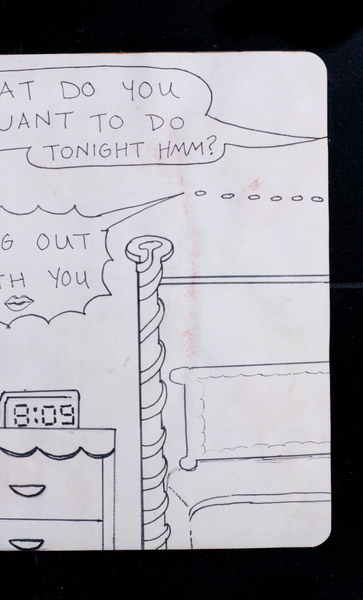 AT DO YOU
WANT TO DO
TONIGHT HMM?
G OUT
TH YOU
8:09